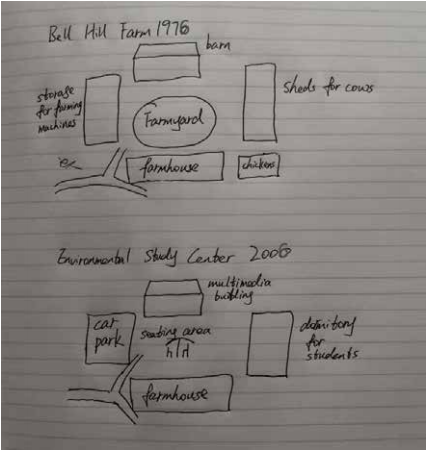 Bell Hill Farm 1976
barn
storage
for farming
machines
Farmyard
Sheds for cows
farmhouse
chickens
Environmental Study Center 2006
multimedia
building
car
park
seating area
dormitory
for
students
farmhouse